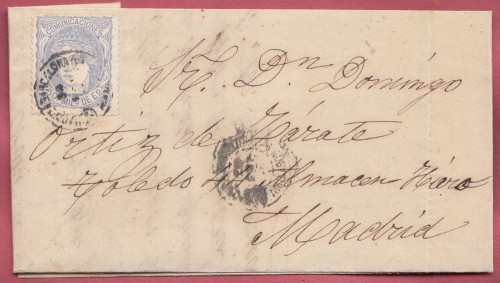 COMUNICACIONES
MILS DE E
Sr. Dn. Domingo
Ortiz de Zárate
Toledo 42 Almacen Hário
Madrid